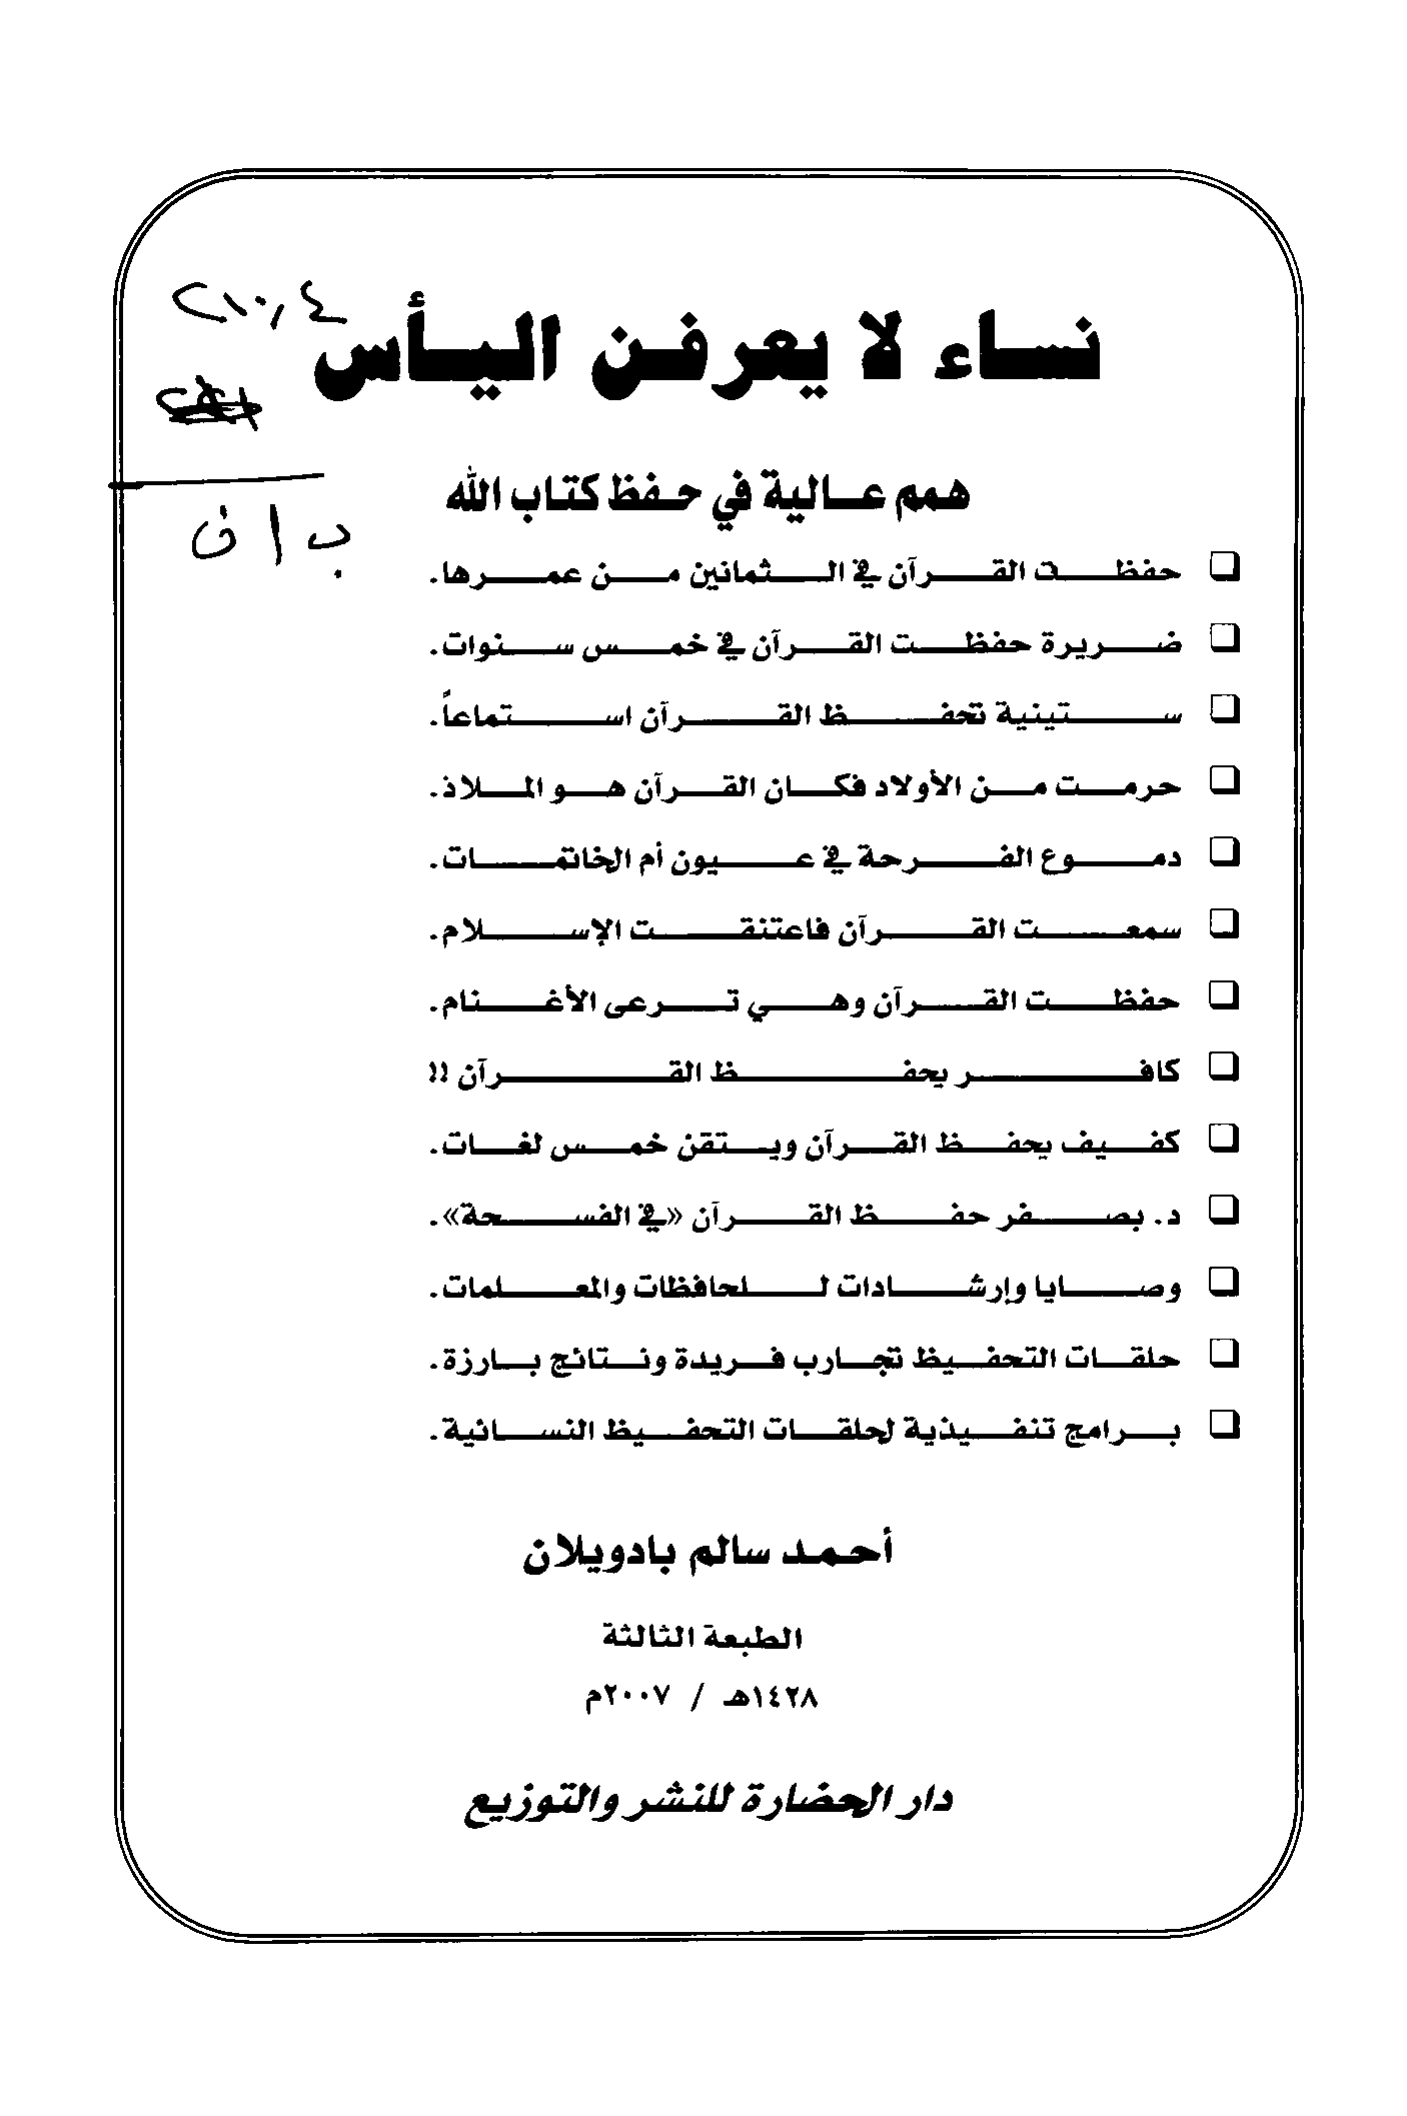 نساء لا يعرفن اليأس
همم عالية في حفظ كتاب الله
ب ا ن
❑ حفظت القرآن في الثمانين من عمرها.
❑ ضريرة حفظت القرآن في خمس سنوات.
❑ ستينية تحفظ القرآن استماعاً.
❑ حرمت من الأولاد فكان القرآن هو الملاذ.
❑ دموع الفرحة في عيون أم الخاتمات.
❑ سمعت القرآن فاعتنقت الإسلام.
❑ حفظت القرآن وهي ترعى الأغنام.
❑ كافر يحفظ القرآن !!
❑ كفيف يحفظ القرآن ويتقن خمس لغات.
❑ د. بصفر حفظ القرآن «في الفسحة».
❑ وصايا وإرشادات للحافظات والمعلمات.
❑ حلقات التحفيظ تجارب فريدة ونتائج بارزة.
❑ برامج تنفيذية لحلقات التحفيظ النسائية.
أحمد سالم بادويلان
الطبعة الثالثة
١٤٢٨هـ / ٢٠٠٧م
دار الحضارة للنشر والتوزيع